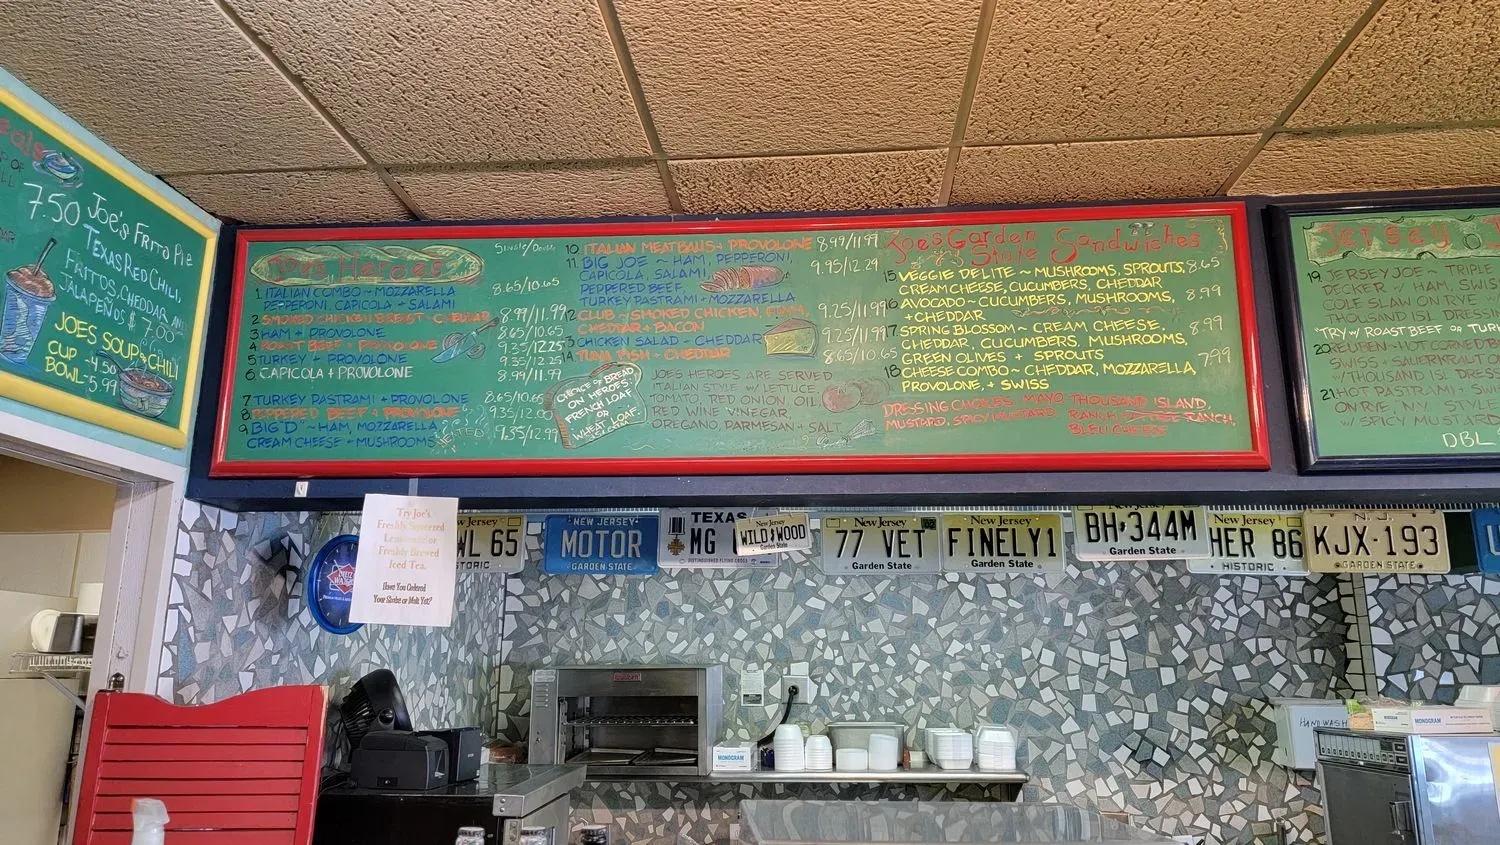 7.50
Joe's Frito Pie
Texas Red Chili,
Fritos, Cheddar and
Jalapeños $7.00
Joes Soup & Chili
Cup -4.50
Bowl -5.99
Joes Heroes
Single/Double
1. Italian Combo ~ Mozzarella 8.65/10.65
Pepperoni, Capicola + Salami
2. Smoked Chicken Breast ~ Cheddar 8.99/11.99
3. Ham + Provolone 8.65/10.65
4. Roast Beef + Provolone 9.35/12.25
5. Turkey + Provolone 9.35/12.25
6. Capicola + Provolone 8.99/11.99
7. Turkey Pastrami + Provolone 8.65/10.65
8. Peppered Beef + Provolone 9.35/12.00
9. Big "D" ~ Ham, Mozzarella, 9.35/12.99
Cream Cheese + Mushrooms
Melted
10. Italian Meatballs + Provolone 8.99/11.99
11. Big Joe ~ Ham, Pepperoni, 9.95/12.29
Capicola, Salami,
Peppered Beef,
Turkey Pastrami + Mozzarella
12. Club ~ Smoked Chicken, Ham, 9.25/11.99
Cheddar + Bacon
13. Chicken Salad ~ Cheddar 9.25/11.99
14. Tuna Fish + Cheddar 8.65/10.65
Choice of Bread
on Heroes:
French Loaf
or
Wheat Loaf.
Joes Heroes are served
Italian Style w/ Lettuce
Tomato, Red Onion, Oil
Red Wine Vinegar,
Oregano, Parmesan + Salt.
Joe's Garden
State Sandwiches
15. Veggie Delite ~ Mushrooms, Sprouts, 8.65
Cream Cheese, Cucumbers, Cheddar
16. Avocado ~ Cucumbers, Mushrooms, 8.99
+ Cheddar
17. Spring Blossom ~ Cream Cheese, 8.99
Cheddar, Cucumbers, Mushrooms,
Green Olives + Sprouts
18. Cheese Combo ~ Cheddar, Mozzarella, 7.99
Provolone, + Swiss
Dressing Choices: Mayo Thousand Island,
Mustard, Spicy Mustard, Ranch, Ranch,
Bleu Cheese
Jersey
19. Jersey Joe ~ Triple
Decker ~ Ham, Swiss
Cole Slaw on Rye
Thousand Isl. Dressing
"Try w/ Roast Beef or Turk
20. Reuben ~ Hot Corned B
Swiss + Sauerkraut o
w/ Thousand Isl. Dress
21. Hot Pastrami + Swi
on Rye, N.Y. Style
w/ Spicy Mustard
DBL
Try Joe's
Freshly Squeezed
Lemonade or
Freshly Brewed
Iced Tea.
Have You Ordered
Your Shake or Malt Yet?
New Jersey
WL 65
STORIC
NEW JERSEY
MOTOR
GARDEN STATE
TEXAS
MG
DISTINGUISHED FLYING CROSS
New Jersey
WILD WOOD
Garden State
New Jersey
77 VET
Garden State
New Jersey
FINELY1
Garden State
BH 344M
Garden State
New Jersey
HER 86
HISTORIC
N.J.
KJX-193
GARDEN STATE
HANDWASH
MONOGRAM
MONOGRAM